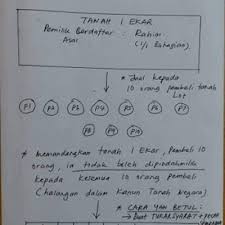 TANAH 1 EKAR
Pemilik Berdaftar : Rahim
Asal (1/1 Bahagian)
* Jual kepada
10 orang pembeli tanah
Lot
P1 P2 P3 P4 P5 P6 P7
P8 P9 P10
* memandangkan tanah 1 EKAR, pembeli 10
orang, ia tidak boleh dipindahmilik
kepada kesemua 10 orang pembeli
(halangan dalam Kanun Tanah Negara)
* CARA YAN BETUL:
→ Buat TUKAR SYARAT +